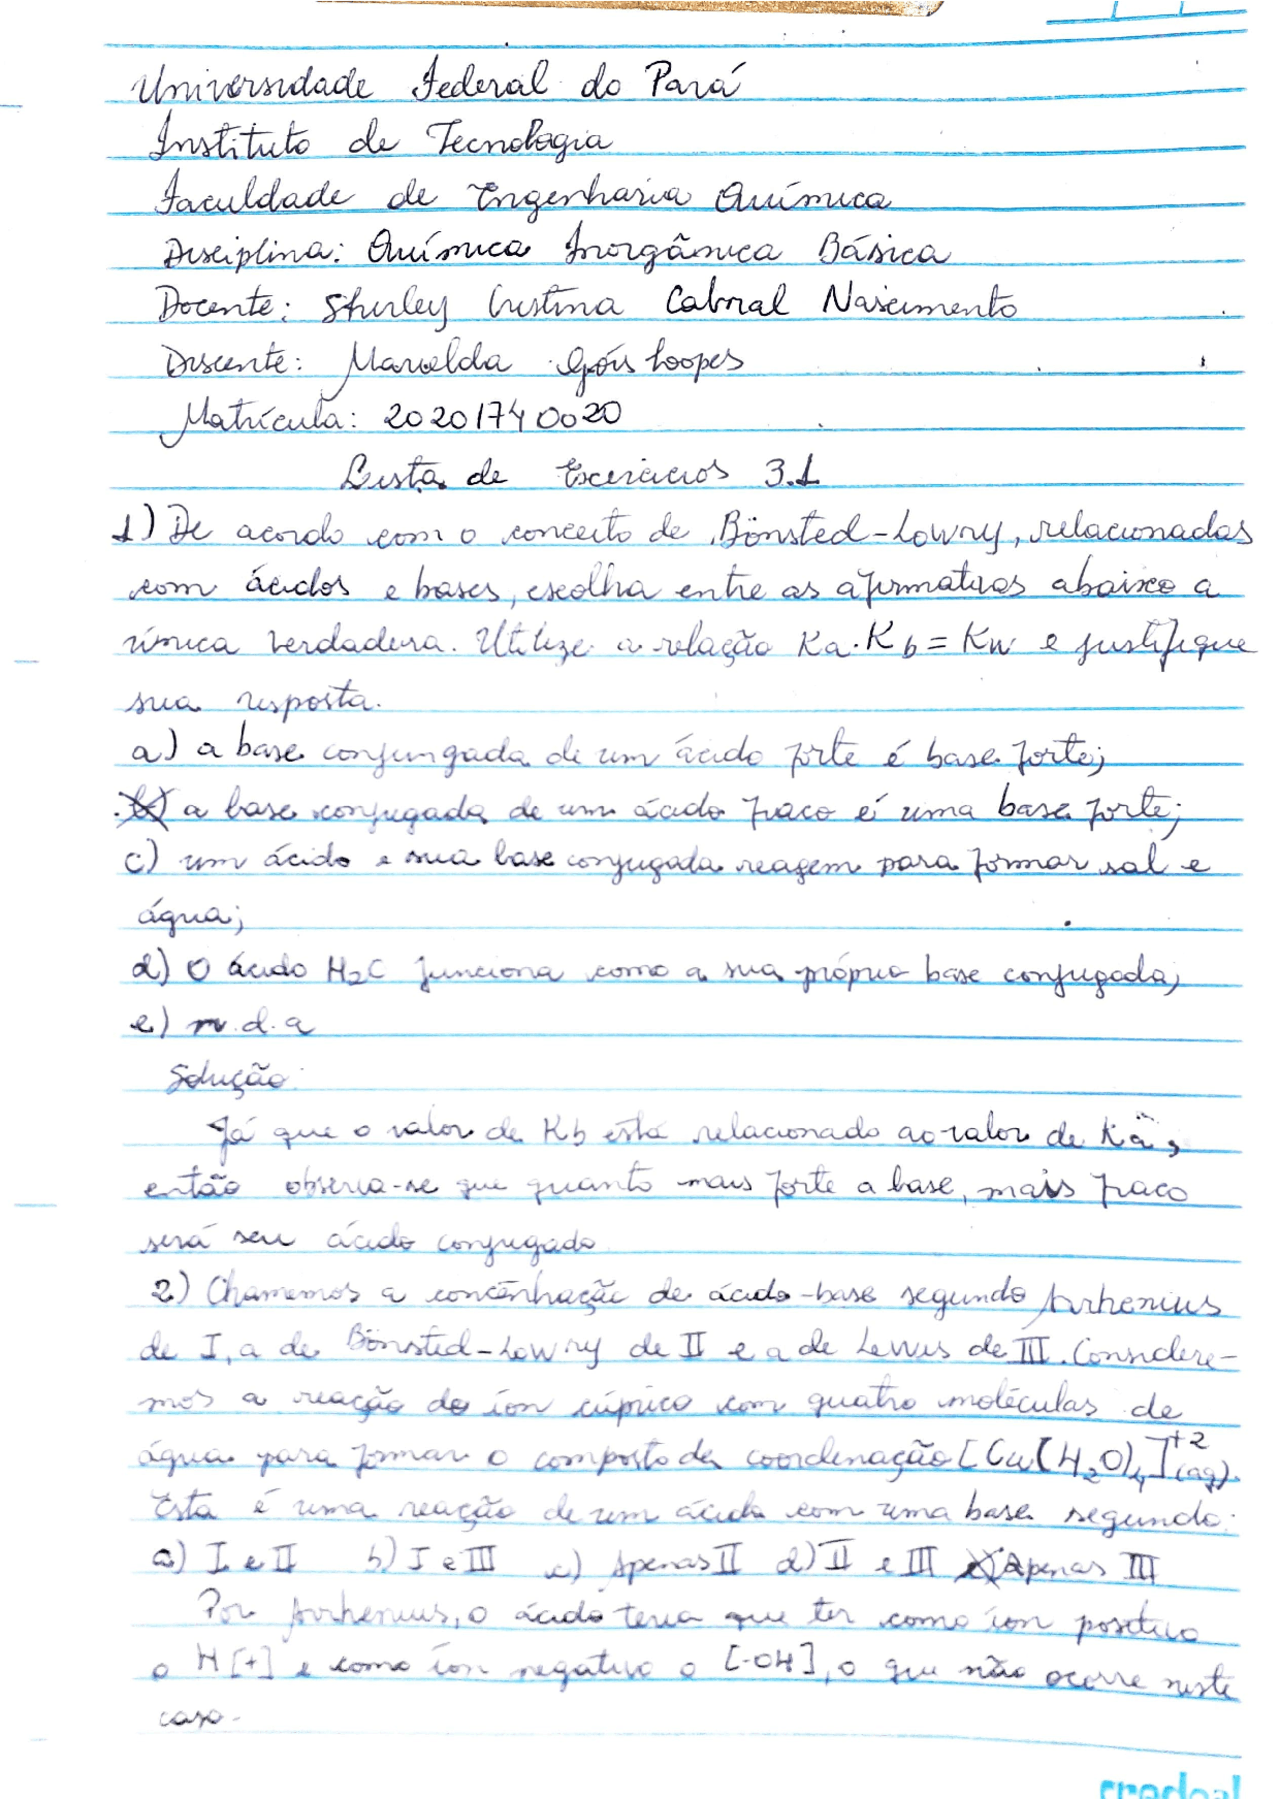 Universidade Federal do Pará
Instituto de Tecnologia
Faculdade de Engenharia Química
Disciplina: Química Inorgânica Básica
Docente: Shirley Cristina Cabral Nascimento
Discente: Marcelda Góis Loopes
Matrícula: 202017400020
Lista de Exercícios 3.1
1) De acordo com o conceito de Bönsted-Lowry, relacionadas
com ácidos e bases, escolha entre as afirmativas abaixo a
única verdadeira. Utilize a relação Ka.Kb = Kw e justifique
sua resposta.
a) a base conjungada de um ácido forte é base forte;
b) a base conjugada de um ácido fraco é uma base forte;
c) um ácido e sua base conjugada reagem para formar sal e
água;
d) O ácido H2C funciona como a sua própria base conjugada;
e) n.d.a
Solução:
Já que o valor de Kb está relacionado ao valor de Ka,
então observa-se que quanto mais forte a base, mais fraco
será seu ácido conjugado
2) Chamemos a concentração de ácido-base segundo Arrhenius
de I, a de Bönsted-Lowry de II e a de Lewis de III. Considere-
mos a reação do íon cúprico com quatro moléculas de
água para formar o composto de coordenação [Cu(H2O)4]+2(aq).
Esta é uma reação de um ácido com uma base segundo:
a) I e II b) I e III c) Apenas II d) II e III e) Apenas III
Por Arrhenius, o ácido teria que ter como íon positivo
o H[+] e como íon negativo o [-OH], o que não ocorre neste
caso.
credeal